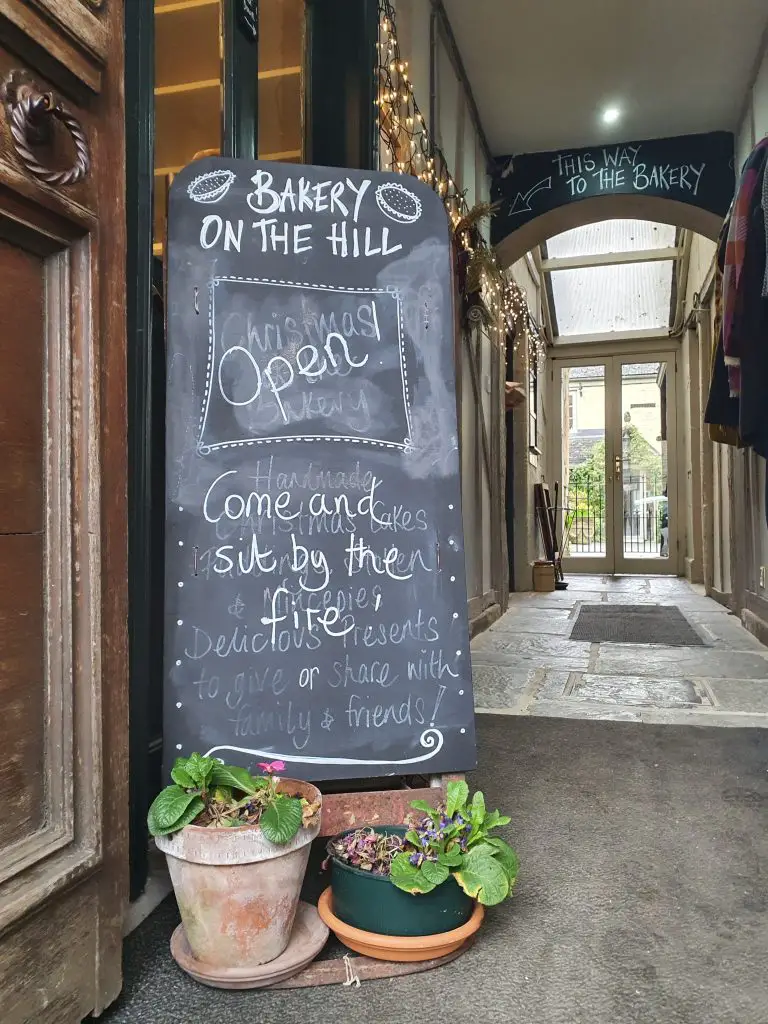 BAKERY
ON THE HILL
Christmas
Open!
Bakery
Handmade
Come and
Christmas Cakes
sit by the
& Mincepies
fire!
Delicious Presents
to give or share with
family & friends!
THIS WAY
TO THE BAKERY